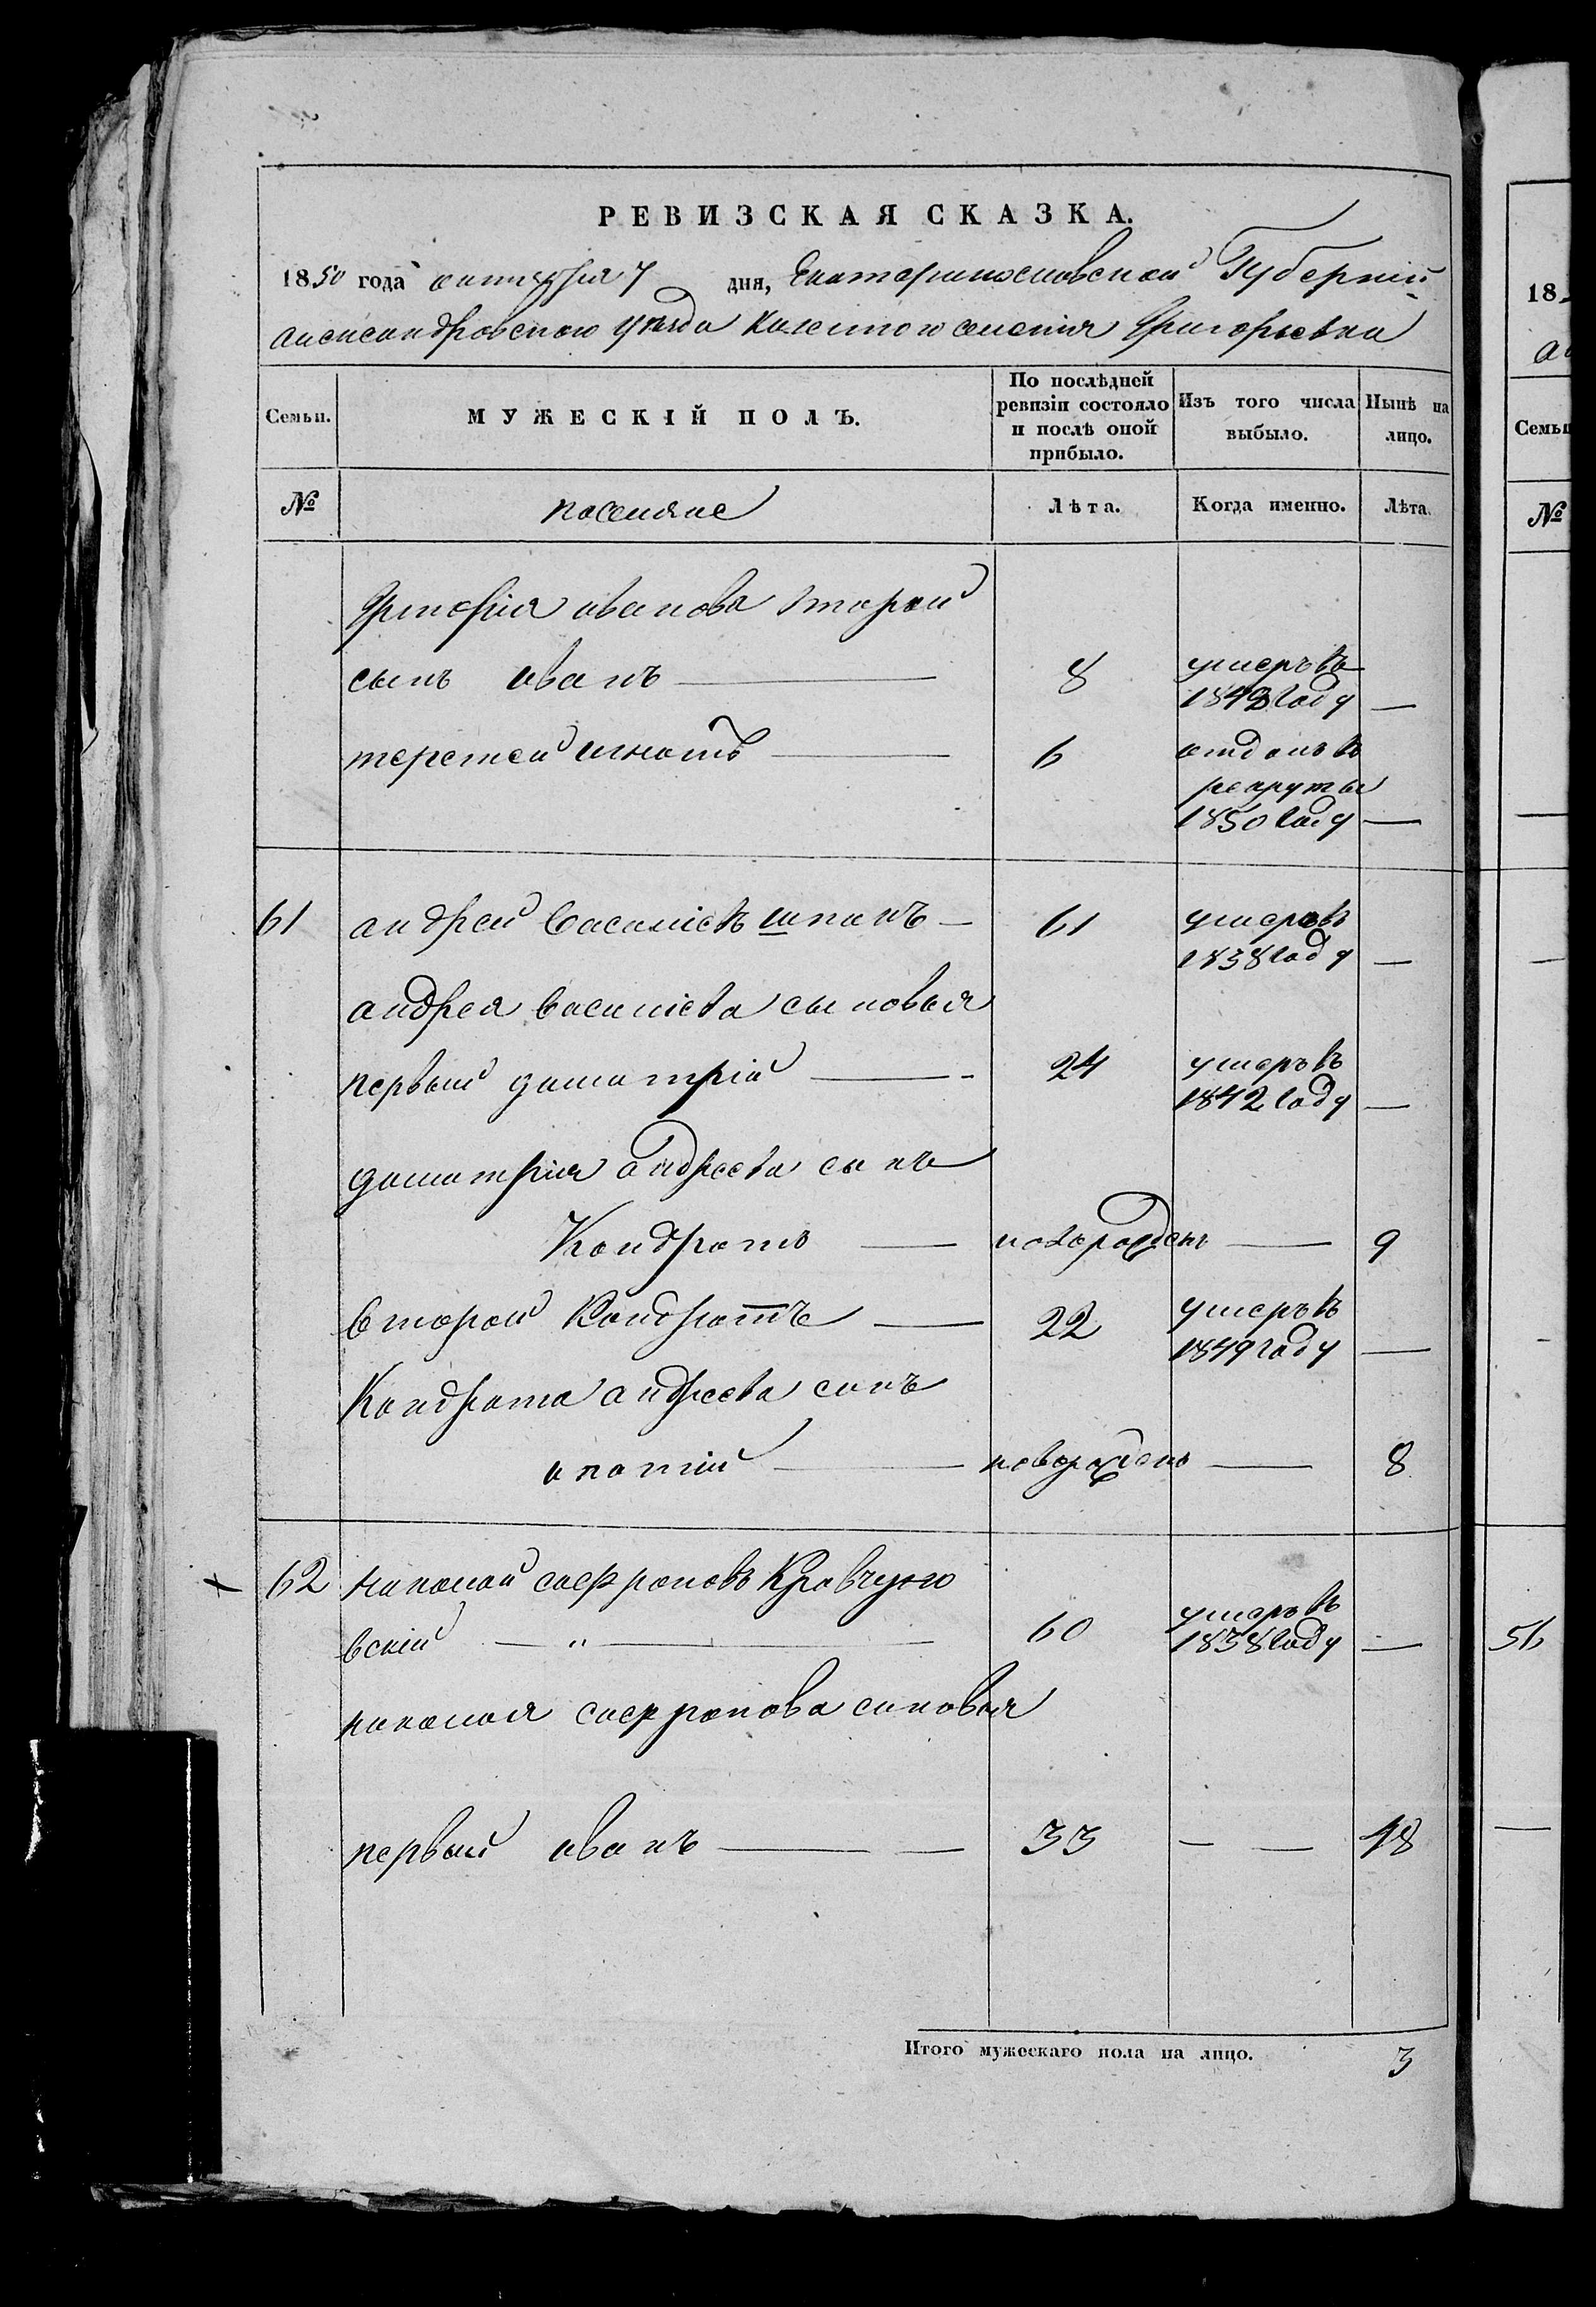 РЕВИЗСКАЯ СКАЗКА.
1850 года октября 7 дня, Екатеринославской Губернiи
александровского уѣзда казенного селенiя Григорьевки
Семьи.
МУЖЕСКIЙ ПОЛЪ.
По послѣдней
ревизiи состояло
и послѣ оной
прибыло.
Изъ того числа
выбыло.
Нынѣ на
лицо.
№
поселяне
Лѣта.
Когда именно.
Лѣта.
Григорiя иванова второй
сынъ иванъ 8 умеръ въ
1849 году —
третей игнатъ 6 отданъ въ
рекруты
1850 году —
61 андрей василiевъ шпакъ — 61 умеръ въ
1838 году —
андрея василiева сыновья
первый димитрiй — 24 умеръ въ
1842 году —
димитрiя андреева сынъ
Кондратъ — новорожденъ — 9
второй Кондратъ — 22 умеръ въ
1849 году —
Кондрата андреева синъ
ипатiй — новорожденъ — 8
62 николай сафроновъ Кравчуно
вскiй — „ — 60 умеръ въ
1838 году —
николая сафронова синовья
первый иванъ — 33 — — 48
Итого мужескаго пола на лицо. 3
18
Семьи
№
56